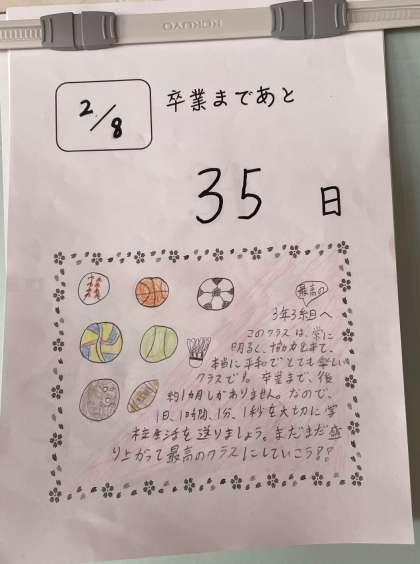 KOKUYO
2/8
卒業まであと
35 日
最高の
3年3組へ
このクラスは、常に
明るく、協力出来て、
本当に平和でとても楽しい
クラスです。卒業まで、後
約1ヵ月しかありません。なので、
1日、1時間、1分、1秒を大切に学
校生活を送りましょう。まだまだ盛
り上がって最高のクラスにしていこう!!